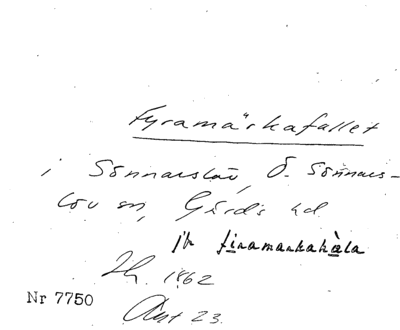 Fyramärkafallet
i Sönnarslöv, Ö. Sönnars-
löv sn, Gärds hd
jfr firamarkahàla
1862
Nr 7750
23.